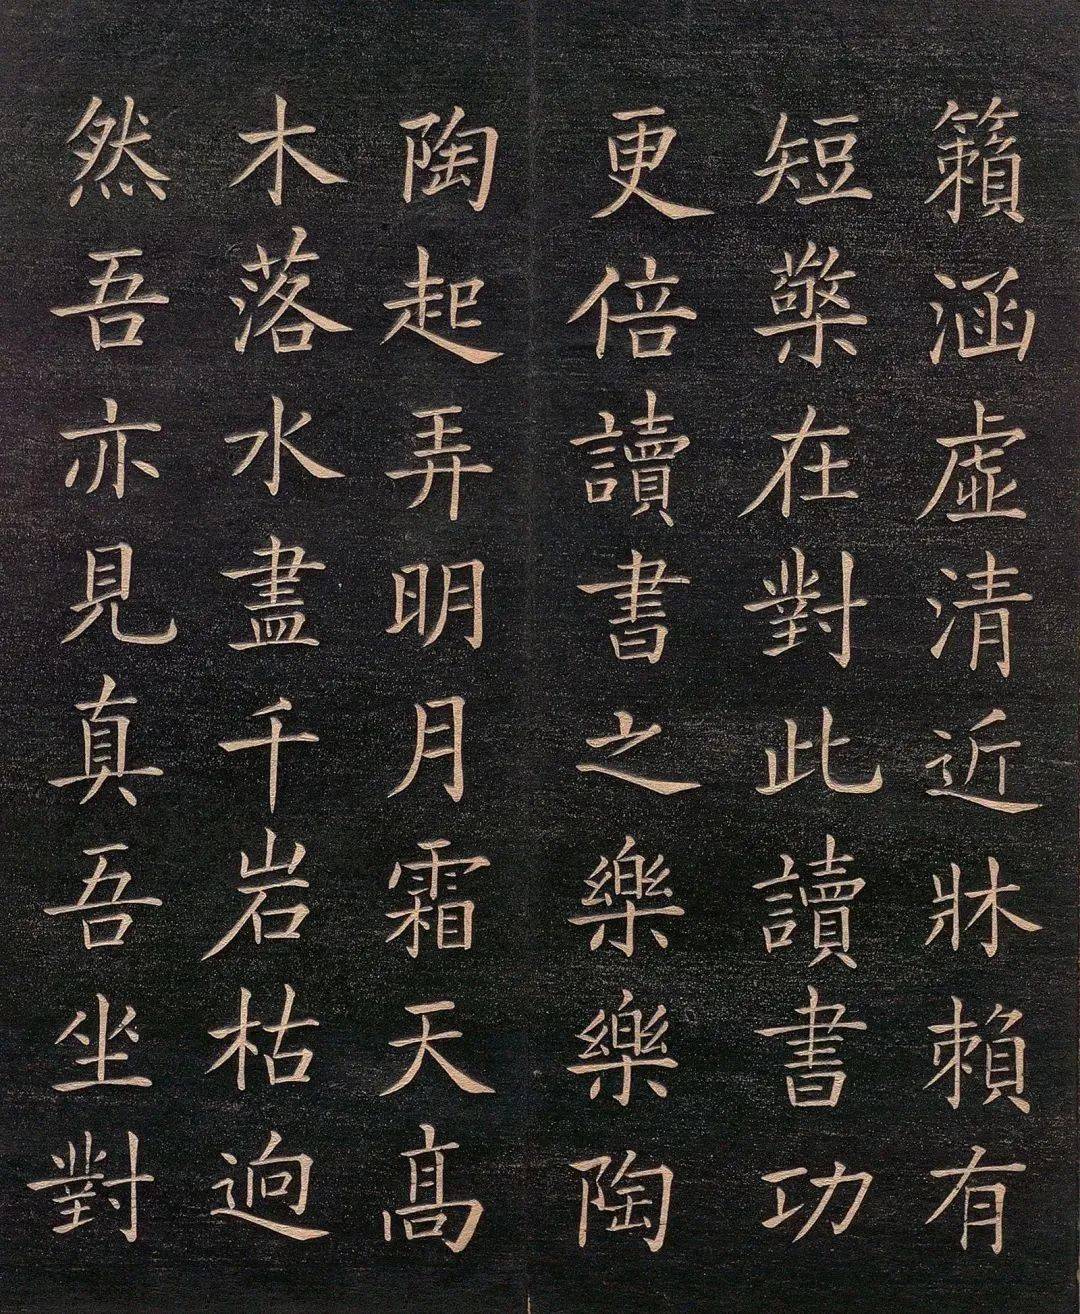 籟涵虛清近牀賴有
短檠在對此讀書功
更倍讀書之樂樂陶
陶起弄明月霜天髙
木落水盡千岩枯逈
然吾亦見真吾坐對